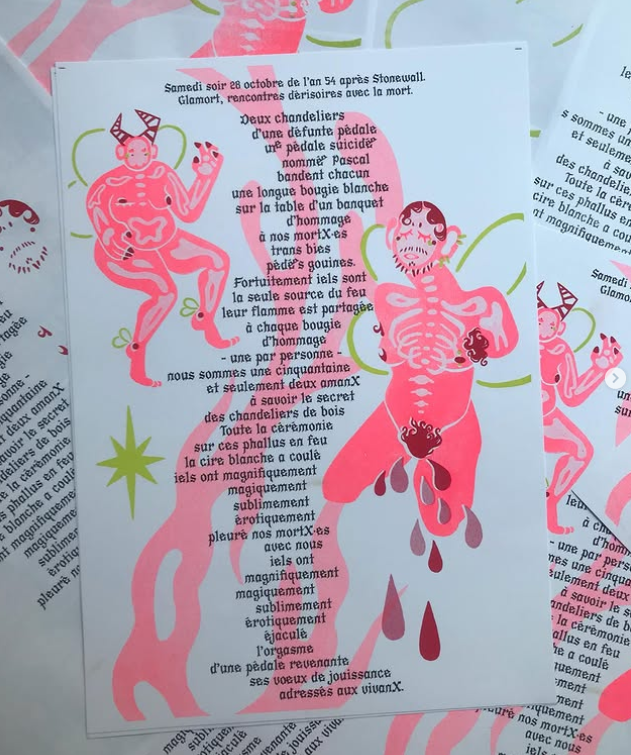 Samedi soir 28 octobre de l'an 54 après Stonewall.
Glamort, rencontres dérisoires avec la mort.
Deux chandeliers
d'une défunte pédale
une pédale suicidée
nommée Pascal
bandent chacun
une longue bougie blanche
sur la table d'un banquet
d'hommage
à nos mortX·es
trans bies
pédées gouines.
Fortuitement iels sont
la seule source du feu
leur flamme est partagée
à chaque bougie
d'hommage
- une par personne -
nous sommes une cinquantaine
et seulement deux amanX
à savoir le secret
des chandeliers de bois
Toute la cérémonie
sur ces phallus en feu
la cire blanche a coulé
iels ont magnifiquement
magiquement
sublimement
érotiquement
pleuré nos mortX·es
avec nous
iels ont
magnifiquement
magiquement
sublimement
érotiquement
éjaculé
l'orgasme
d'une pédale revenante
ses voeux de jouissance
adressés aux vivanX.